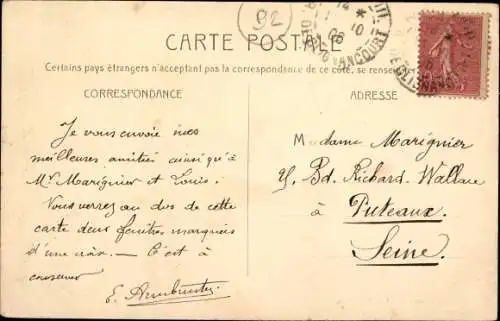 92
CARTE POSTALE
Certains pays étrangers n'acceptant pas la correspondance de ce côté, se rense
CORRESPONDANCE
ADRESSE
Je vous envoie mes
meilleures amitiés ainsi qu'à
Mr Marignier et Louis.
Vous verrez au dos de cette
carte deux fenêtres marquées
d'une croix. — C'est à
conserver
E.
Madame Marignier
Bd. Richard-Wallace
à Puteaux.
Seine.